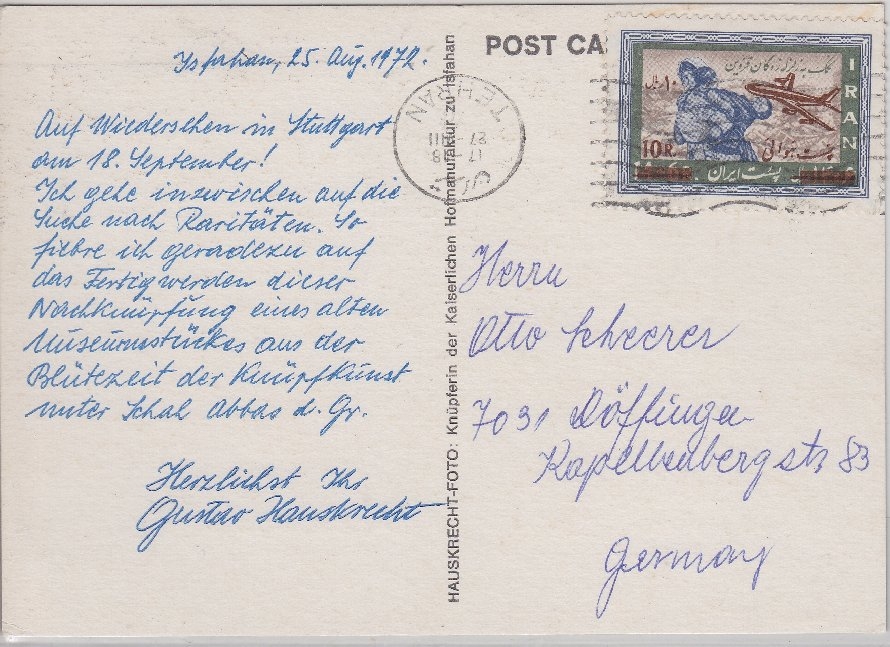 Isfahan, 25. Aug. 1972.
Auf Wiedersehen in Stuttgart
am 18. September!
Ich gehe inzwischen auf die
Suche nach Raritäten. So
fiebre ich geradezu auf
das Fertigwerden dieser
Nachknüpfung eines alten
Museumsstückes aus der
Blütezeit der Knüpfkunst
unter Schah Abbas d. Gr.
Herzlichst Ihr
Gustav Hauskrecht
HAUSKRECHT-FOTO: Knüpferin der Kaiserlichen Hofmanufaktur zu Isfahan
POST CA
TEHRAN
IRAN
۱۰ ریال
10 R
پست هوائی
پست ایران
Herrn
Otto Scheerer
7031 Döffingen
Kapellenbergstr 83
Germany